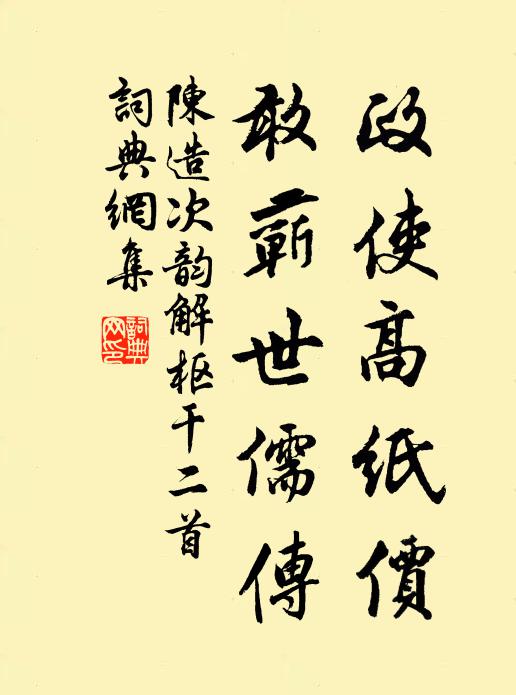 政使高紙價
敢蘄世儒傳
陳造次韵解枢干二首
詞典網集
詞典網印